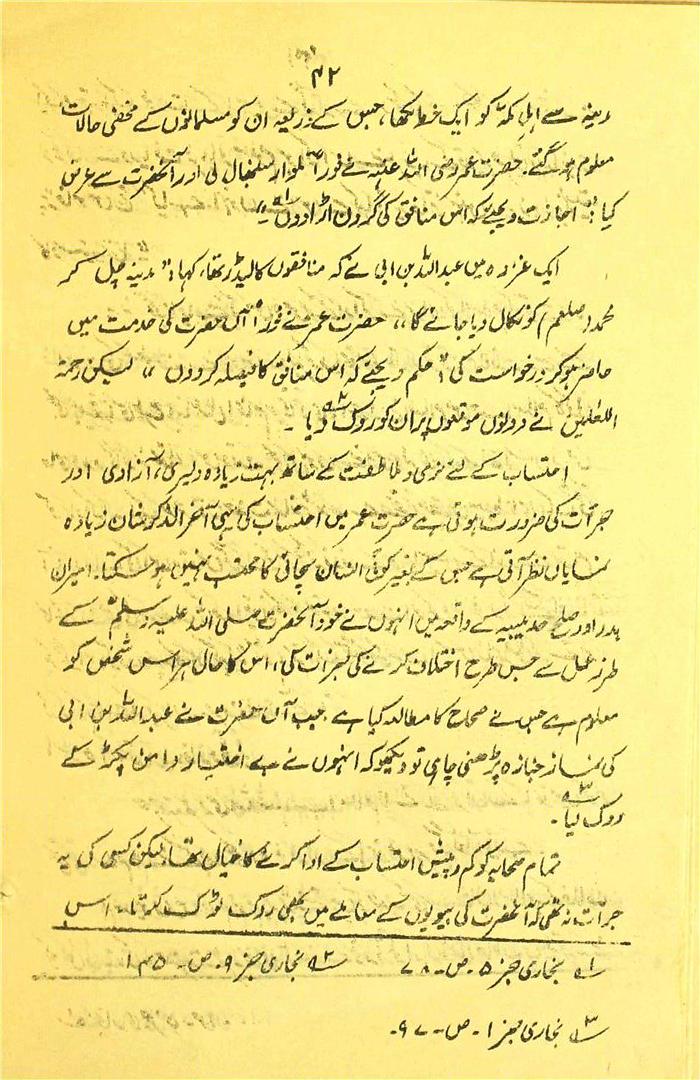 ۴۲
مدینہ سے اہلِ مکہ کو ایک خط لکھا، جس کے ذریعہ ان کو مسلمانوں کے مخفی حالات
معلوم ہو گئے۔ حضرت عمر رضی اللہ عنہ نے فوراً تلوار سنبھال لی اور آنحضرت سے عرض
کیا: "اجازت دیجئے کہ اس منافق کی گردن اڑا دوں"۔ ۱؎
ایک غزوہ میں عبداللہ بن ابی نے کہ منافقوں کا لیڈر تھا، کہا: "مدینہ چل کر
محمد (صلعم) کو نکال دیا جائے گا" حضرت عمر نے فوراً آں حضرت کی خدمت میں
حاضر ہو کر درخواست کی: "حکم دیجئے کہ اس منافق کا فیصلہ کر دوں" لیکن رحمۃ
اللعٰلمین نے دونوں موقعوں پر ان کو روک دیا ۲؎۔
احتساب کے لئے نرمی و ملاطفت کے ساتھ بہت زیادہ دلیری، آزادی اور
جرأت کی ضرورت ہوتی ہے حضرت عمر میں احتساب کی یہی آخر الذکر شان زیادہ
نمایاں نظر آتی ہے جس کے بغیر کوئی انسان سچائی کا محتسب نہیں ہو سکتا۔ اسیران
بدر اور صلح حدیبیہ کے واقعہ میں انہوں نے خود آنحضرت صلی اللہ علیہ وسلم کے
طرزِ عمل سے جس طرح اختلاف کرنے کی جرأت کی، اس کا حال ہر اس شخص کو
معلوم ہے جس نے صحاح کا مطالعہ کیا ہے۔ جب آں حضرت نے عبداللہ بن ابی
کی نماز جنازہ پڑھنی چاہی تو دیکھو کہ انہوں نے بے اختیار دامن پکڑ کے
روک لیا ۳؎۔
تمام صحابہ کو کم و بیش احتساب کے ادا کرنے کا خیال تھا، لیکن کسی کی یہ
جرأت نہ تھی کہ آنحضرت کی بیویوں کے معاملے میں بھی روک ٹوک کرتا۔ اس
۱؎ بخاری جز ۵۔ ص۔ ۷۸ ۲؎ بخاری جز ۹۔ ص۔ ۱۴۵
۳؎ بخاری جز ۱۔ ص۔ ۹۷۔